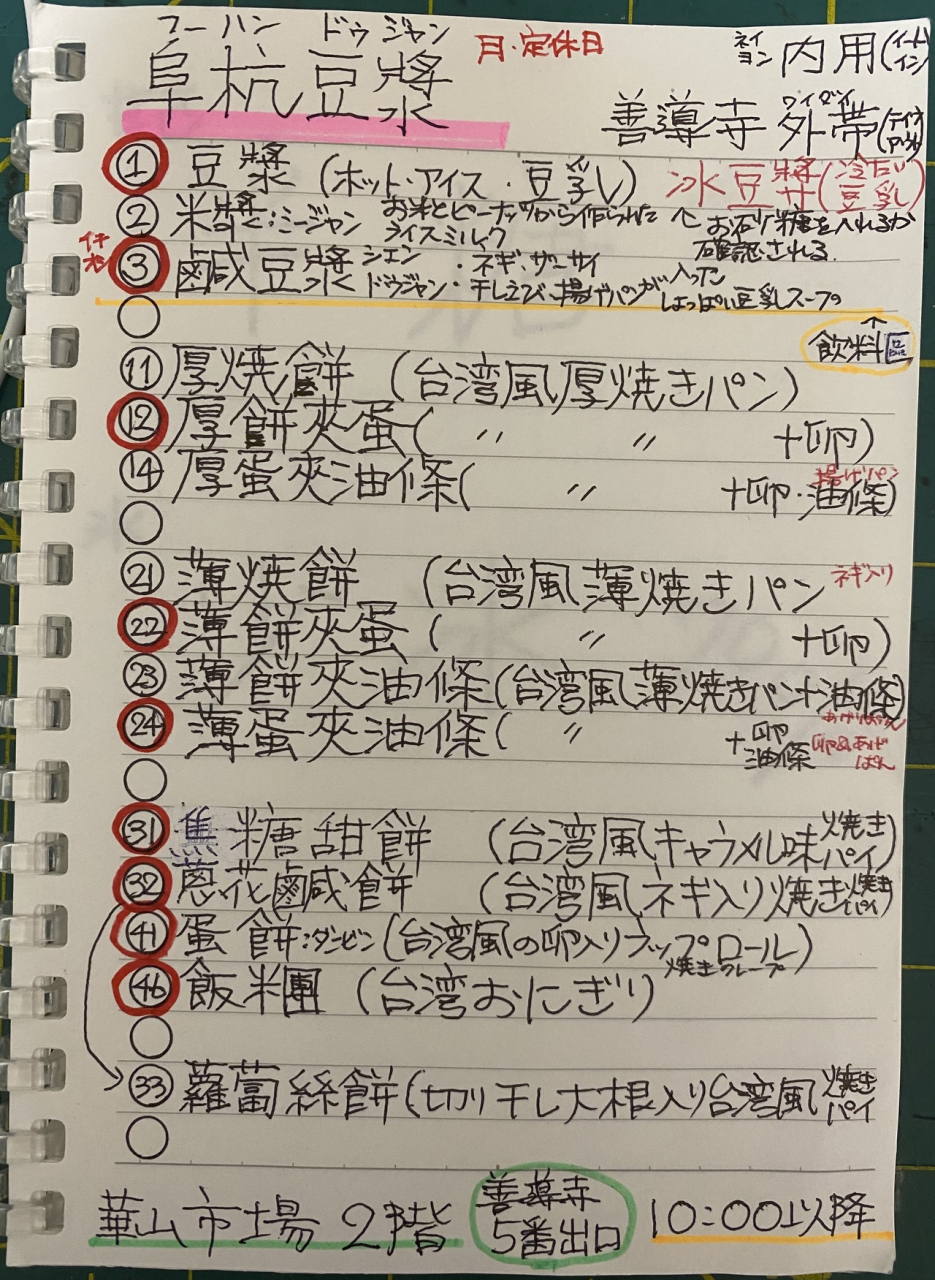 フーハン ドゥジャン
阜杭豆漿
月・定休日
ネイヨン 内用(イートイン)
善導寺 ワイダイ 外帯(テイクアウト)
① 豆漿 (ホット・アイス・豆乳) 冰豆漿(冷たい豆乳)
② 米漿:ミージャン お米とピーナッツから作られたライスミルク ↑お砂糖を入れるか確認される。
イチオシ ③ 鹹豆漿 シェンドウジャン ・ネギ、ザーサイ・干しえび、揚げパンが入ったしょっぱい豆乳スープ。
↑
飲料
⑪ 厚焼餅 (台湾風厚焼きパン)
⑫ 厚餅夾蛋( 〃 〃 +卵)
⑭ 厚蛋夾油條( 〃 +卵・油條) 揚げパン
㉑ 薄焼餅 (台湾風薄焼きパン ネギ入り
㉒ 薄餅夾蛋( 〃 +卵)
㉓ 薄餅夾油條(台湾風薄焼きパン+油條)
㉔ 薄蛋夾油條( 〃 +卵 油條 卵&あげぱん
㉛ 焦糖甜餅 (台湾風キャラメル味焼きパイ)
㉜ 蔥花鹹餅 (台湾風ネギ入り焼き焼きパイ)
㊶ 蛋餅:ダンビン(台湾風の卵入りラップロール) 焼きクレープ
㊻ 飯糰 (台湾おにぎり)
㉝ 蘿蔔絲餅(切り干し大根入り台湾風焼きパイ
華山市場 2階
善導寺
5番出口
10:00以降